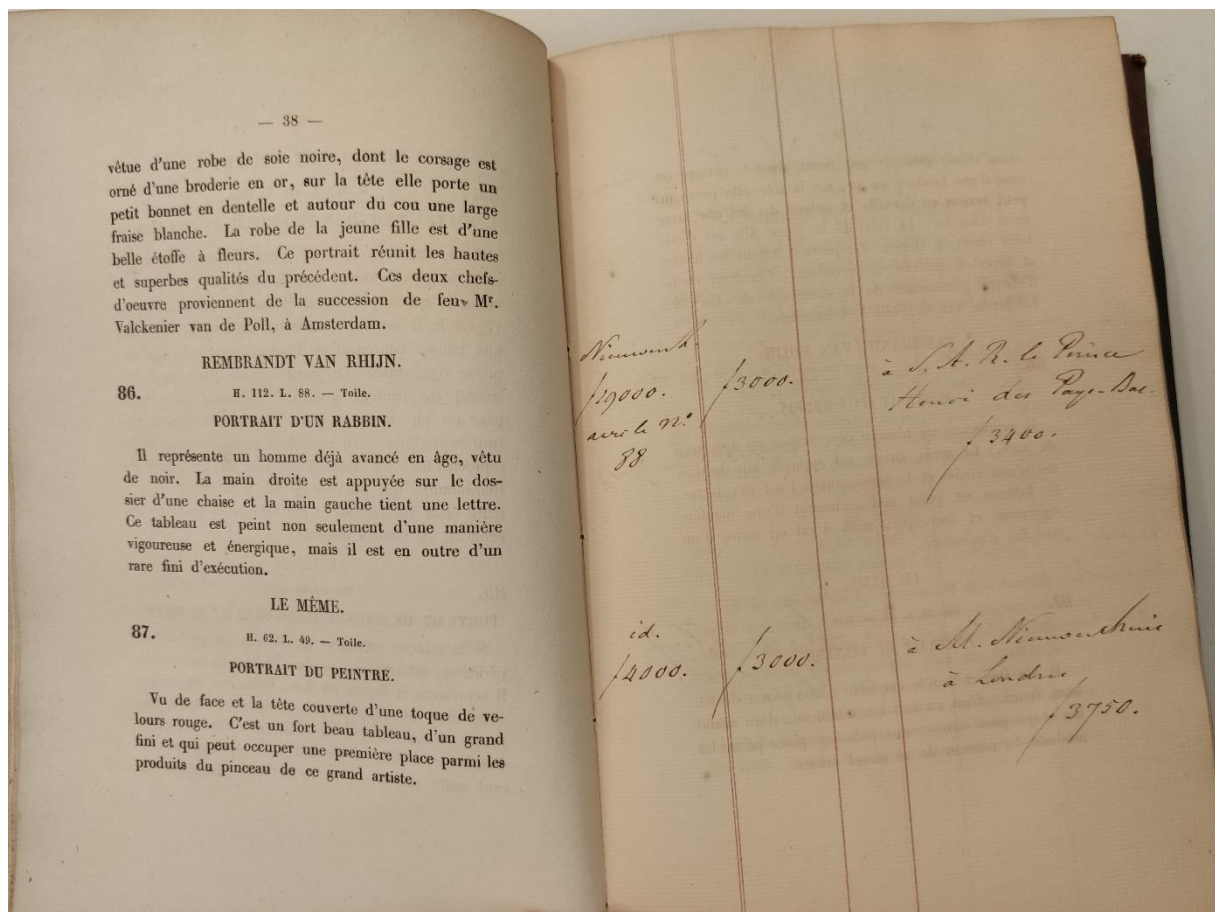 — 38 —
vêtue d'une robe de soie noire, dont le corsage est
orné d'une broderie en or, sur la tête elle porte un
petit bonnet en dentelle et autour du cou une large
fraise blanche. La robe de la jeune fille est d'une
belle étoffe à fleurs. Ce portrait réunit les hautes
et superbes qualités du précédent. Ces deux chefs-
d'oeuvre proviennent de la succession de feu Mr.
Valckenier van de Poll, à Amsterdam.
REMBRANDT VAN RHIJN.
86.
H. 112. L. 88. — Toile.
PORTRAIT D'UN RABBIN.
Il représente un homme déjà avancé en âge, vêtu
de noir. La main droite est appuyée sur le dos-
sier d'une chaise et la main gauche tient une lettre.
Ce tableau est peint non seulement d'une manière
vigoureuse et énergique, mais il est en outre d'un
rare fini d'exécution.
LE MÊME.
87.
H. 62. L. 49. — Toile.
PORTRAIT DU PEINTRE.
Vu de face et la tête couverte d'une toque de ve-
lours rouge. C'est un fort beau tableau, d'un grand
fini et qui peut occuper une première place parmi les
produits du pinceau de ce grand artiste.
Nieuwenh.
f19000.
avec le No
88
f3000.
à S. A. R. le Prince
Henri des Pays-Bas.
f3400.
id.
f4000.
f3000.
à M. Nieuwenhuis
à Londres
f3750.